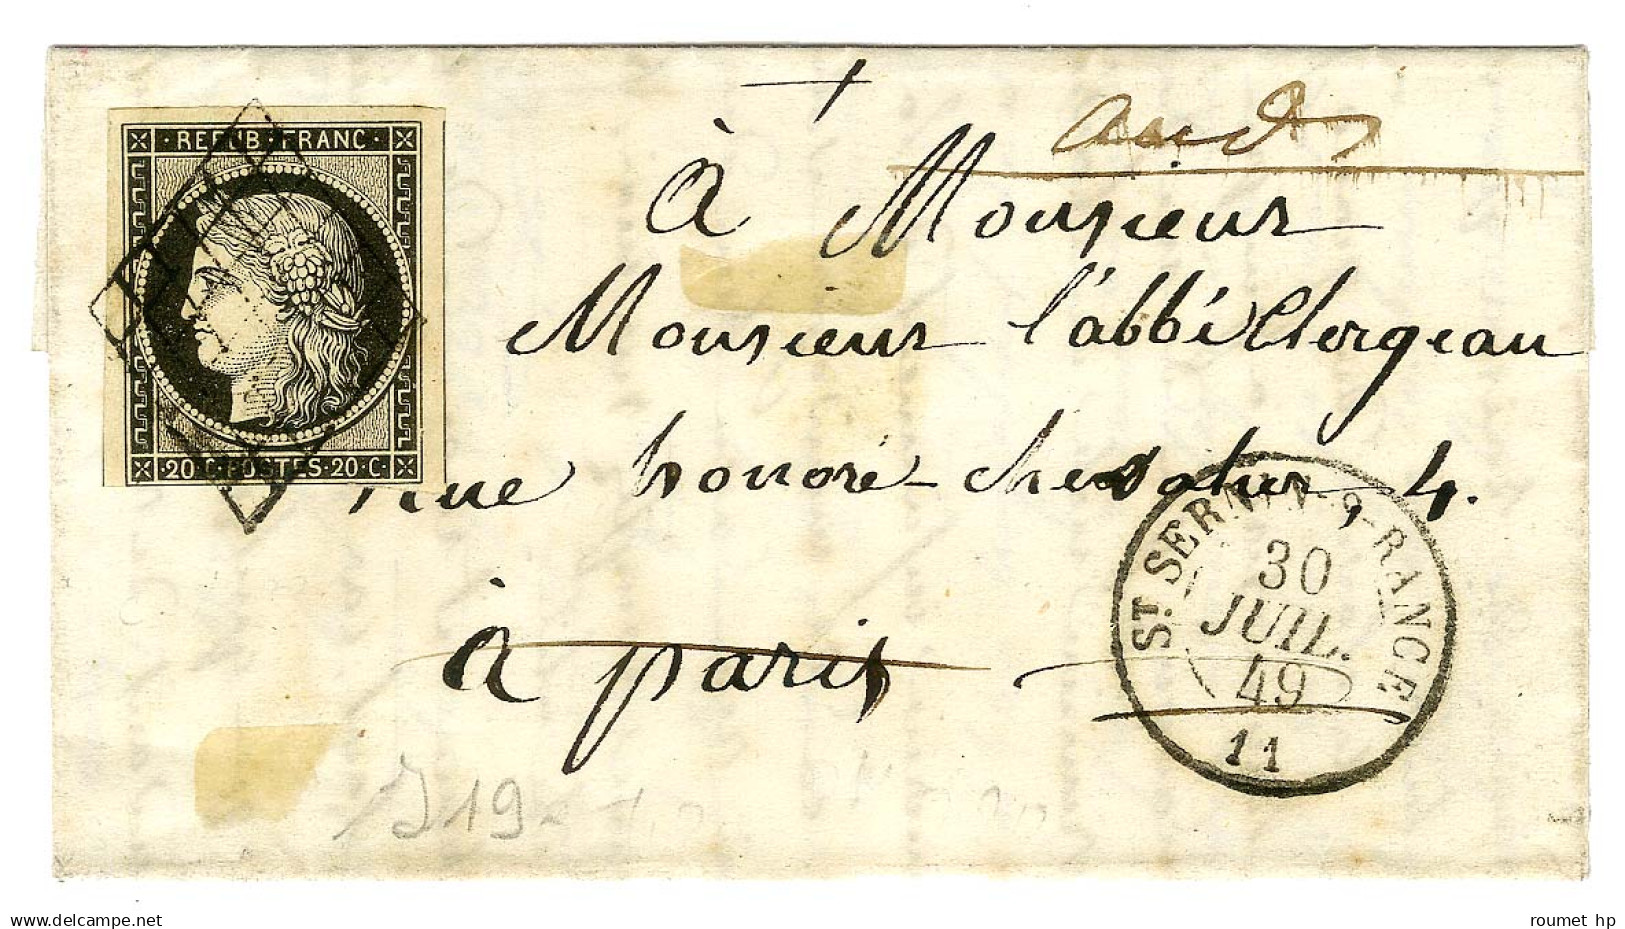 REPUB. FRANC
20 C. POSTES. 20 C.
à Monsieur
Monsieur l'abbé Clergeau
Rue honoré-chevalier, 4.
à paris
ST. SERNIN-S-RANCE
30
JUIL.
49
11
J19
www.delcampe.net
roumet hp